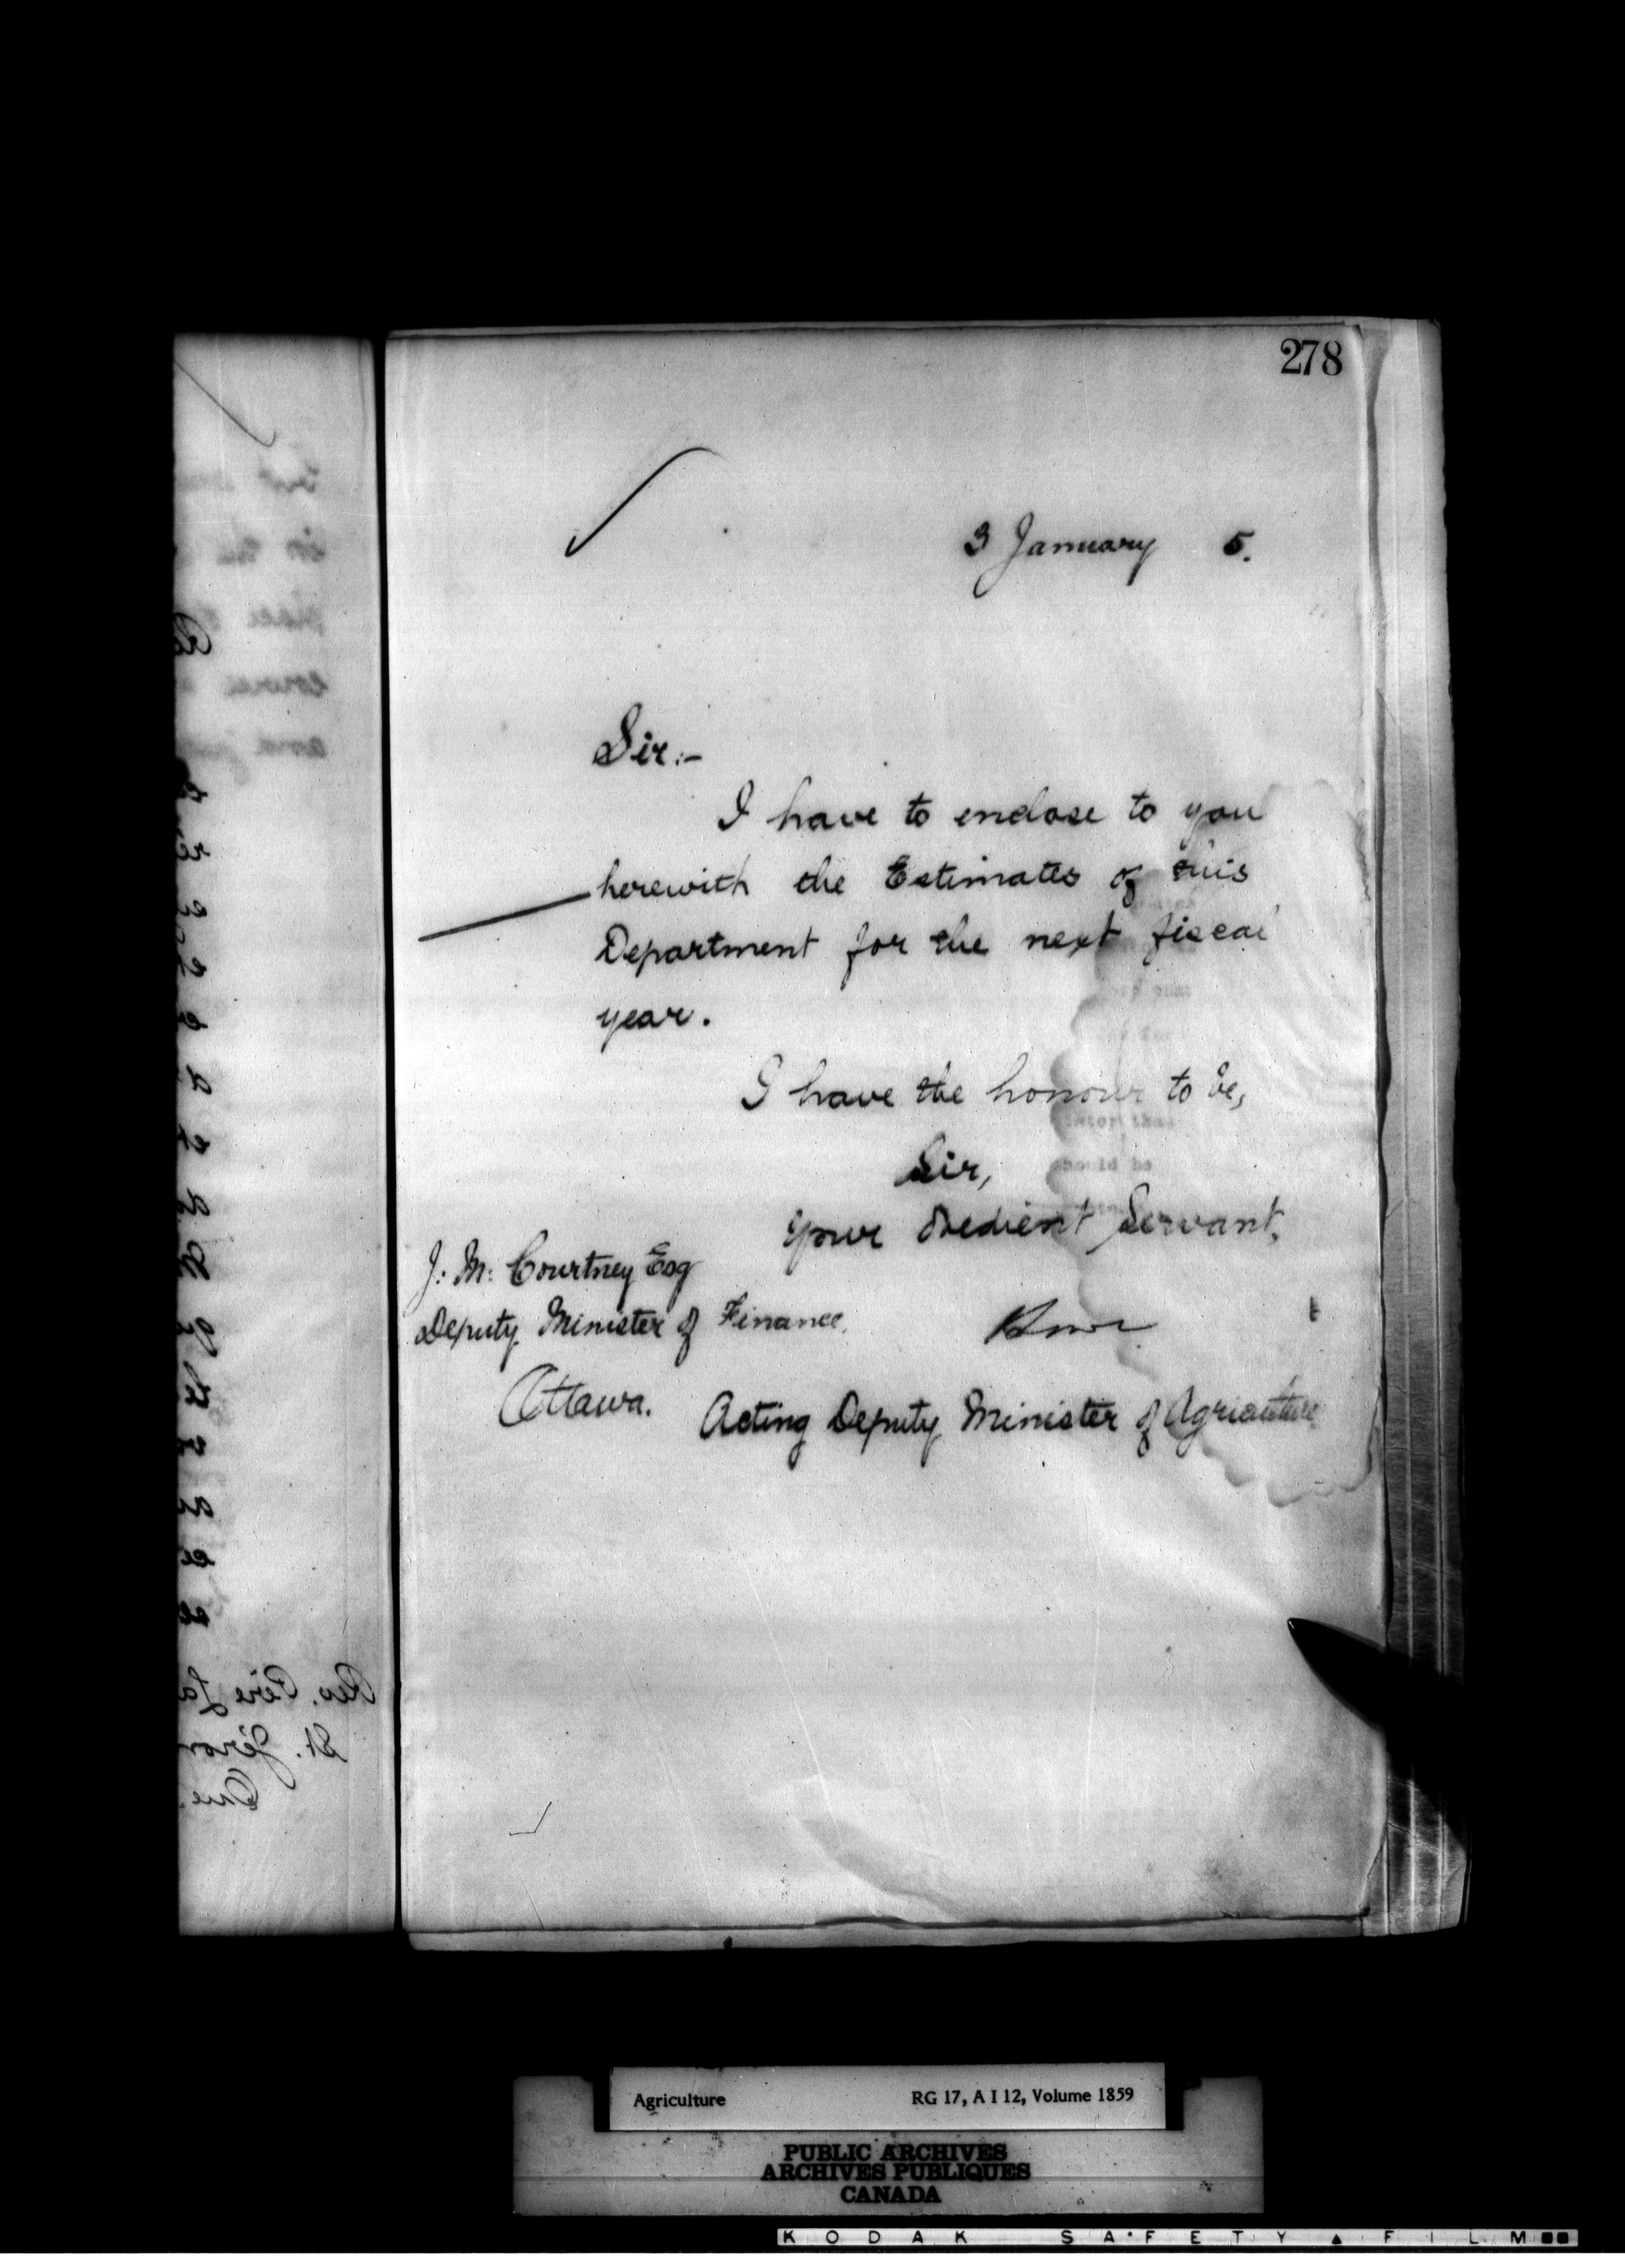 278
3 January 5.
Sir:-
I have to enclose to you
herewith the Estimates of this
Department for the next fiscal
year.
I have the honour to be,
Sir,
Your obedient Servant,
J. M. Courtney Esq
Deputy Minister of Finance.
Ottawa.
Acting Deputy Minister of Agriculture
Agriculture RG 17, A I 12, Volume 1859
PUBLIC ARCHIVES
ARCHIVES PUBLIQUES
CANADA
KODAK SAFETY FILM